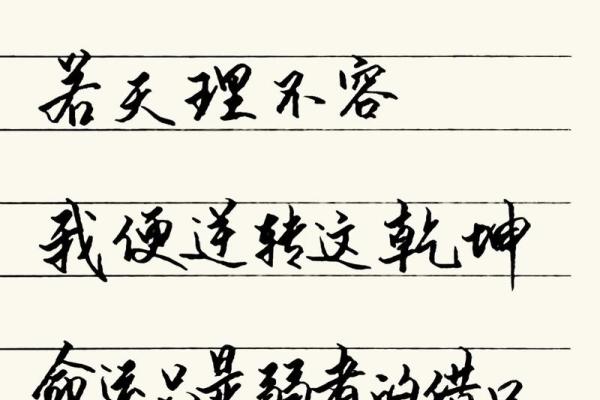 若天理不容
我便逆转这乾坤
命运只是弱者的借口